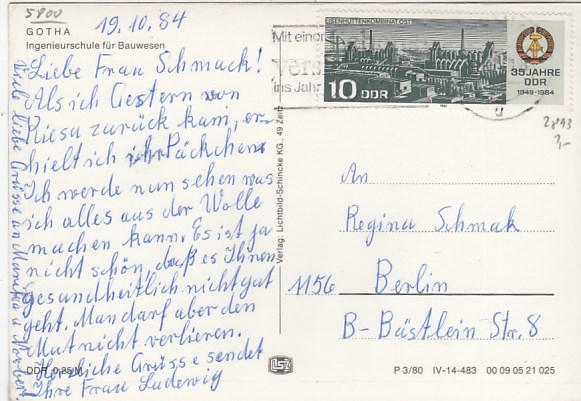 5800
19.10.84
GOTHA
Ingenieurschule für Bauwesen
Liebe Frau Schmack!
Als ich Gestern von
Riesa zurück kam, er-
hielt ich ihr Päckchen.
Ich werde nun sehen was
ich alles aus der Wolle
machen kann. Es ist ja
nicht schön, daß es Ihnen
gesundheitlich nicht gut
geht. Man darf aber den
Mut nicht verlieren.
Herzliche Grüsse sendet
Ihre Frau Ludewig
Viele liebe Grüsse an Monika u Norbert
DDR 0,25 M
Verlag: Lichtbild-Schincke KG, 49 Zeitz
Mit einer
vers
ins Jahr
EISENHÜTTENKOMBINAT OST
10 DDR
35 JAHRE
DDR
1949-1984
2893
An
Regina Schmak
1156 Berlin
B-Bästlein Str. 8
P 3/80 IV-14-483 00 09 05 21 025